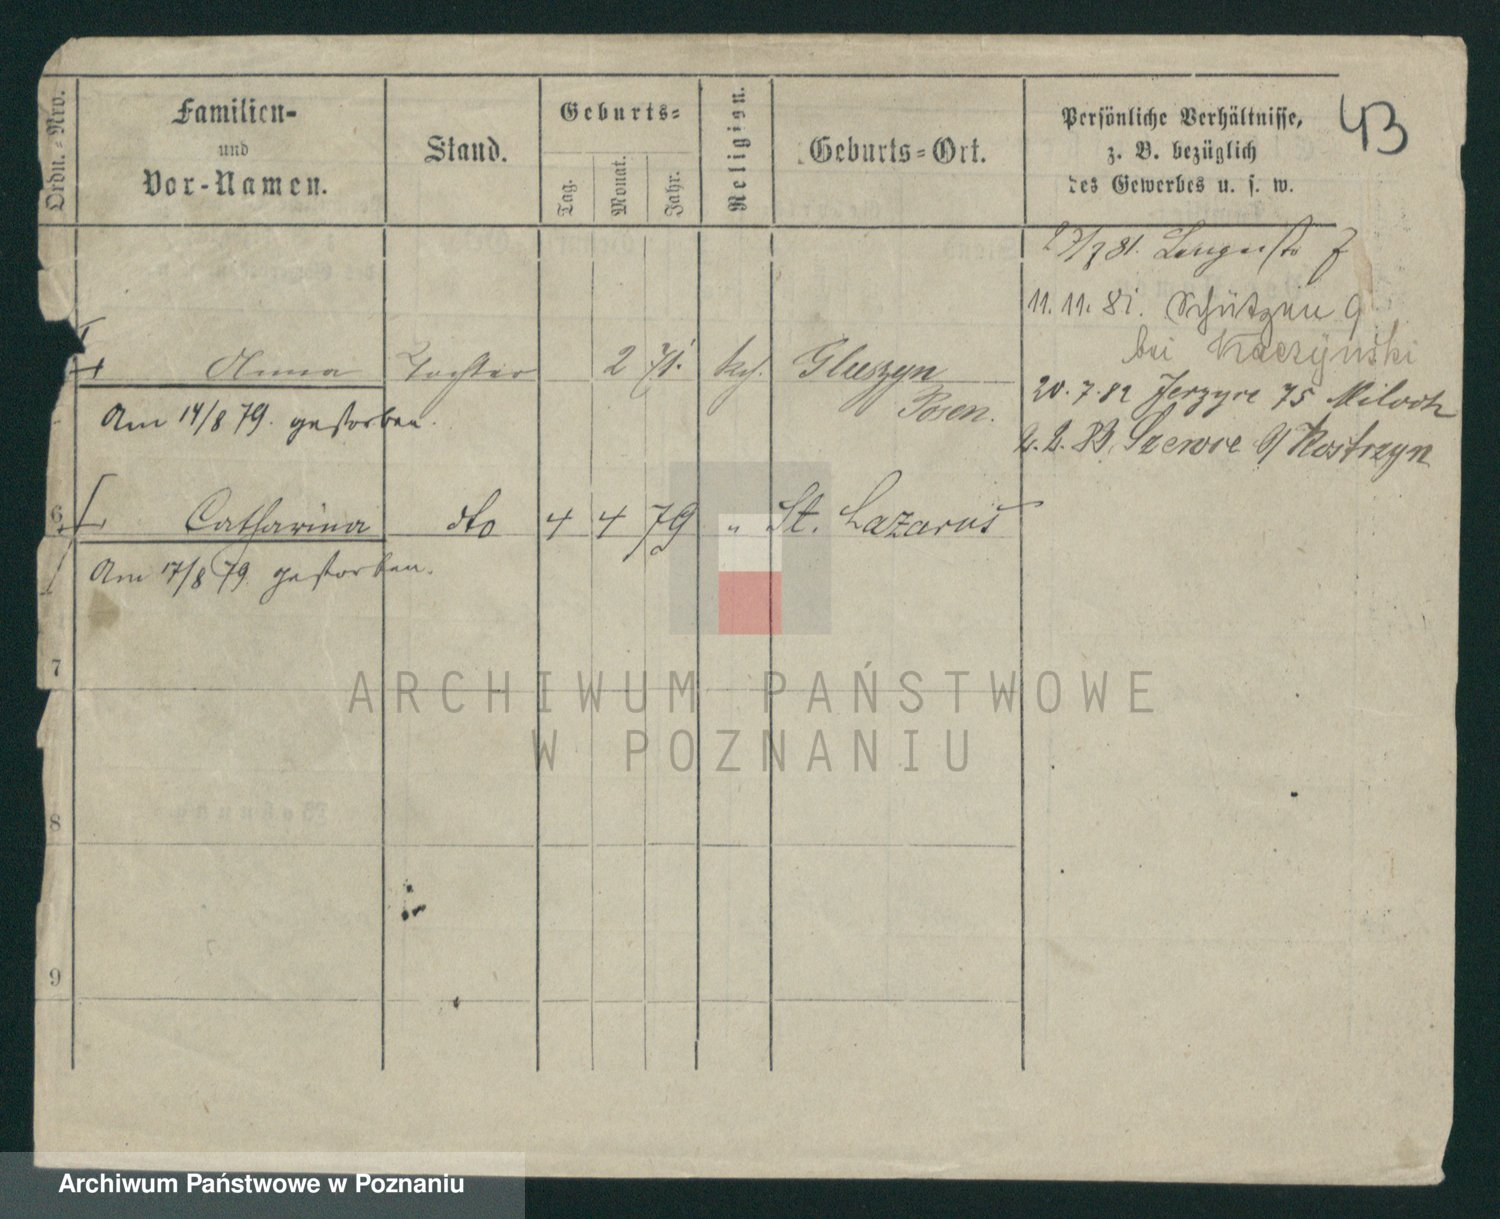 43
Ordn.=Nro.
Familien-
und
Vor-Namen.
Stand.
Geburts=
Tag.
Monat.
Jahr.
Religion.
Geburts=Ort.
Persönliche Verhältnisse,
z. B. bezüglich
des Gewerbes u. s. w.
11. 11. 81. Schützen 9
bei Kaczynski
Anna Tochter 2 71. kch. Gluszyn
Posen.
20. 7. 82 Jerzyce 75
Am 14/8 79. gestorben.
2. 2. 83. Szewce / Kostrzyn
6 Catharina dto 4 4 79 " St. Lazarus
Am 17/8 79 gestorben.
7
8
9
ARCHIWUM PAŃSTWOWE
W POZNANIU
Archiwum Państwowe w Poznaniu